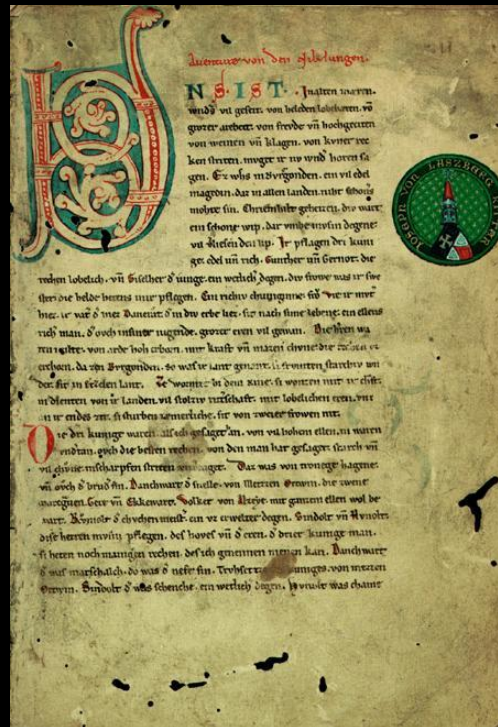 Auenture von den Nibelungen.
NS. IST. In alten mæren.
wndˢ vil geseit. von heleden lobebæren. vō
grozer arebeit. von freude vn̄ hochgeciten
von weinen vn̄ klagen. von kuner rec
ken striten. muget ir nv wndˢ horen sa
gen. Ez whs in Bvrgonden. ein vil edel
magedin. daz in allen landen. niht schoners
mohte sin. Chriemhilt geheizen. div wart
ein schone wip. dar vmbe mvsin degene
vil verliesen den lip. Ir pflagen dri kuni
ge. edel vn̄ rich. Gunther vn̄ Gernot. die
rechen lobelich. vn̄ Giselher dˢ iunge. ein wetlich degen. div frowe was ir swe
ster. die helde hetens inre pflegen. Ein richiv chuniginne. frō Vte ir mvtˢ
hiez. ir vatˢ dˢ hiez Dancrat. dˢ in div erbe liez. sit nach sime lebene. ein ellens
rich man. dˢ ovch in siner iugende. grozer eren vil gewan. Die herren wa
ren milte. von arde hoh erborn. mit kraft vn̄ mazen chvne. die rechen vz
erchorn. da zen Bvrgonden. so was ir lant genant. si frvmten starchiv wn
der. sit in Ezelen lant. Ze Wormze bi dem Rine. si wonten mit ir chraft.
in dienten von ir landen. vil stoltziv ritschaft. mit lobelichen eren. vnz
an ir endes zit. si sturben iæmerliche. sit von zweier frowen nit.
Die dri kunige waren. als ich gesaget han. von vil hohem ellen. in waren
vndertan. ovch die besten rechen. von den man hat gesaget. starch vn̄
vil chvne. in scharpfen striten unverzaget. Daz was von Tronege Hagene.
vn̄ ovch dˢ brudˢ sin. Danchwart dˢ snelle. von Metzen Ortwin. die zwene
marcgraven. Gere vn̄ Ekkewart. Volker von Alzeye. mit ganzem ellen wol be
wart. Rvmolt dˢ chvchen meistˢ. ein vz erwelter degen. Sindolt vn̄ Hvnolt.
dise herren mvsin pflegen. des hoves vn̄ dˢ eren. dˢ drier kunige man.
si heten noch manigen rechen. des ich genennen nienen kan. Danchwart
dˢ was marschalch. do was dˢ nefe sin. Trvhsetze des kuniges. von Metzen
Ortwin. Sindolt dˢ was schenche. ein wetlich degen. Hvnolt was chame
JOSEPH VON LASZBERG RITTER